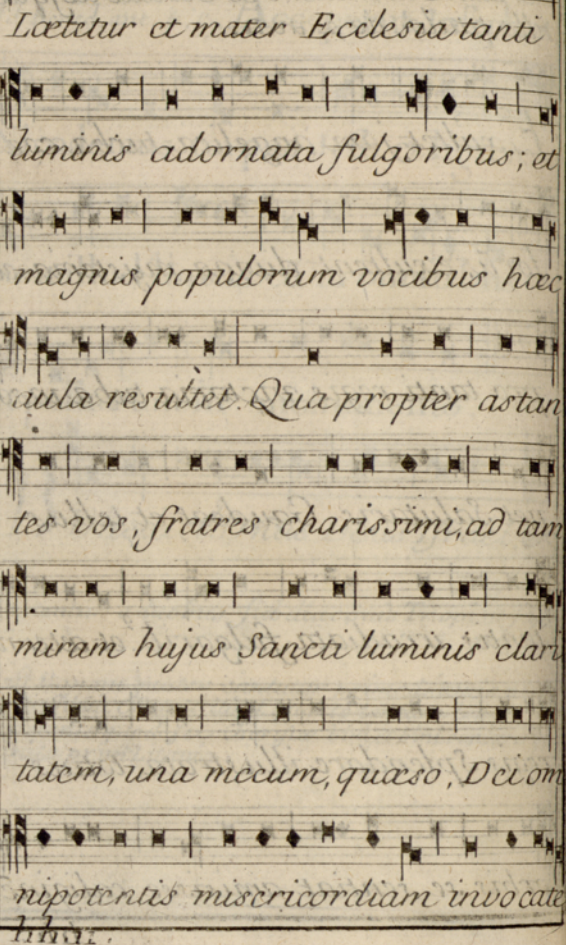 Lætetur et mater Ecclesia tanti
luminis adornata fulgoribus; et
magnis populorum vocibus hæc
aula resultèt. Qua propter astan
tes vos, fratres charissimi, ad tam
miram hujus Sancti luminis clari
tatem, una mecum, quæso, Dei om
nipotentis misericordiam invocate